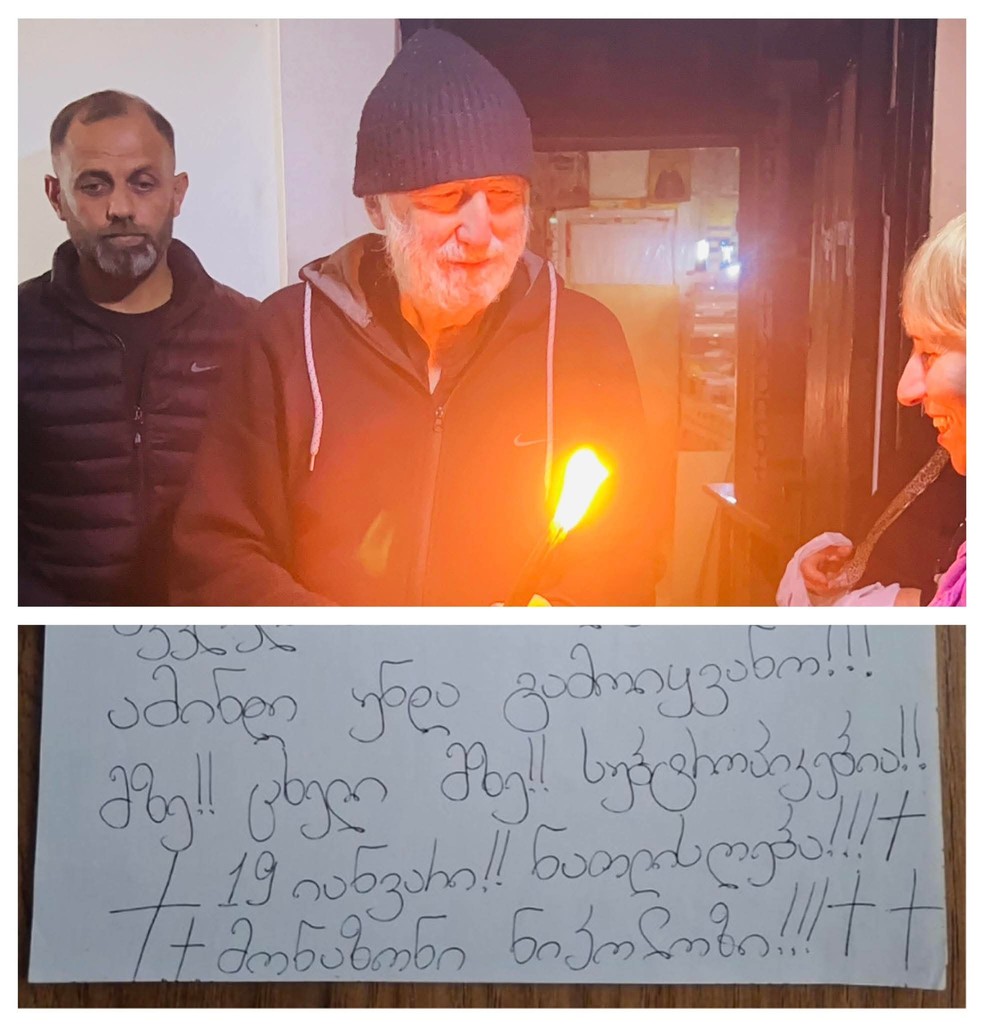 ამინდი უნდა გამოიყვანო!!!
მზე!! ცხელი მზე!! სუბტროპიკებია!!
† 19 იანვარი!! ნათლისღება!!! †
† მონაზონი ნიკოლოზი!!! † †